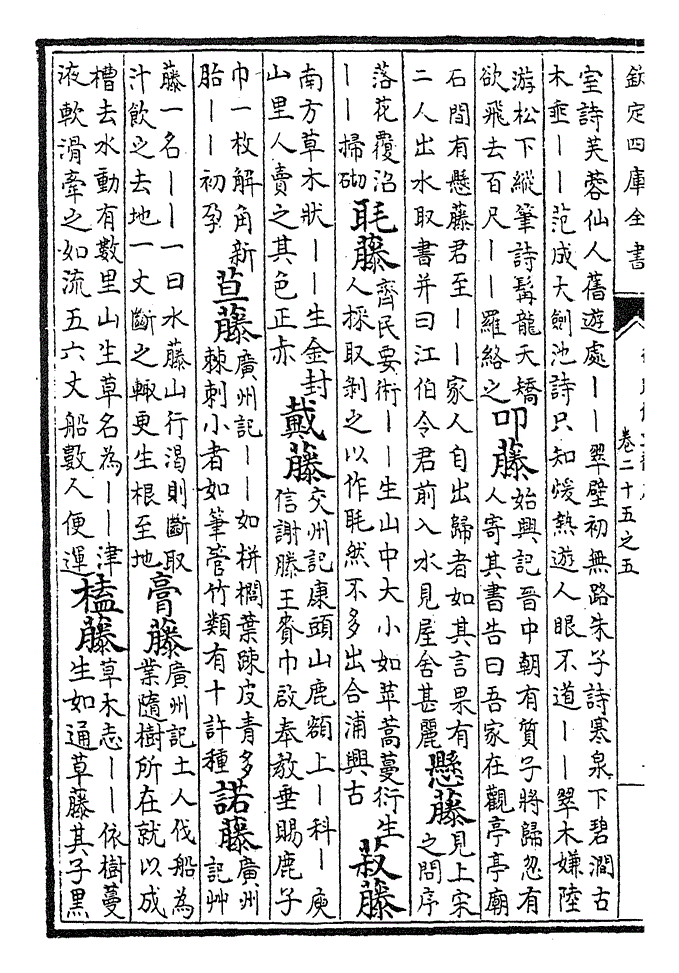 欽定四庫全書
卷二十五之五
室詩芙蓉仙人舊遊處丨丨翠壁初無路朱子詩寒泉下碧澗古
木垂丨丨范成大劍池詩只知煖熱遊人眼不道丨丨翠木嫌陸
游松下縱筆詩髯龍夭矯
欲飛去百尺丨丨羅絡之
叩藤
始興記晉中朝有質子將歸忽有
人寄其書告曰吾家在觀亭亭廟
石間有懸藤君至丨丨家人自出歸者如其言果有
二人出水取書并曰江伯令君前入水見屋舍甚麗
懸藤
見上宋
之問序
落花覆沿
丨丨掃砌
毦藤
齊民要術丨丨生山中大小如苹蒿蔓衍生
人採取剝之以作毦然不多出合浦興古
菽藤
南方草木狀丨丨生金封
山里人賣之其色正赤
戴藤
交州記康頭山鹿額上丨科丨庾
信謝滕王賚巾啟奉教垂賜鹿子
巾一枚解角新
胎丨丨初孕
荁藤
廣州記丨丨如栟櫚葉踈皮青多
棘刺小者如筆管竹類有十許種
諾藤
廣州
記艸
藤一名丨丨一曰水藤山行渴則斷取
汁飲之去地一丈斷之輒更生根至地
膏藤
廣州記土人伐船為
業隨樹所在就以成
槽去水動有數里山生草名為丨丨津
液軟滑牽之如流五六丈船數人便運
榼藤
草木志丨丨依樹蔓
生如通草藤其子黑